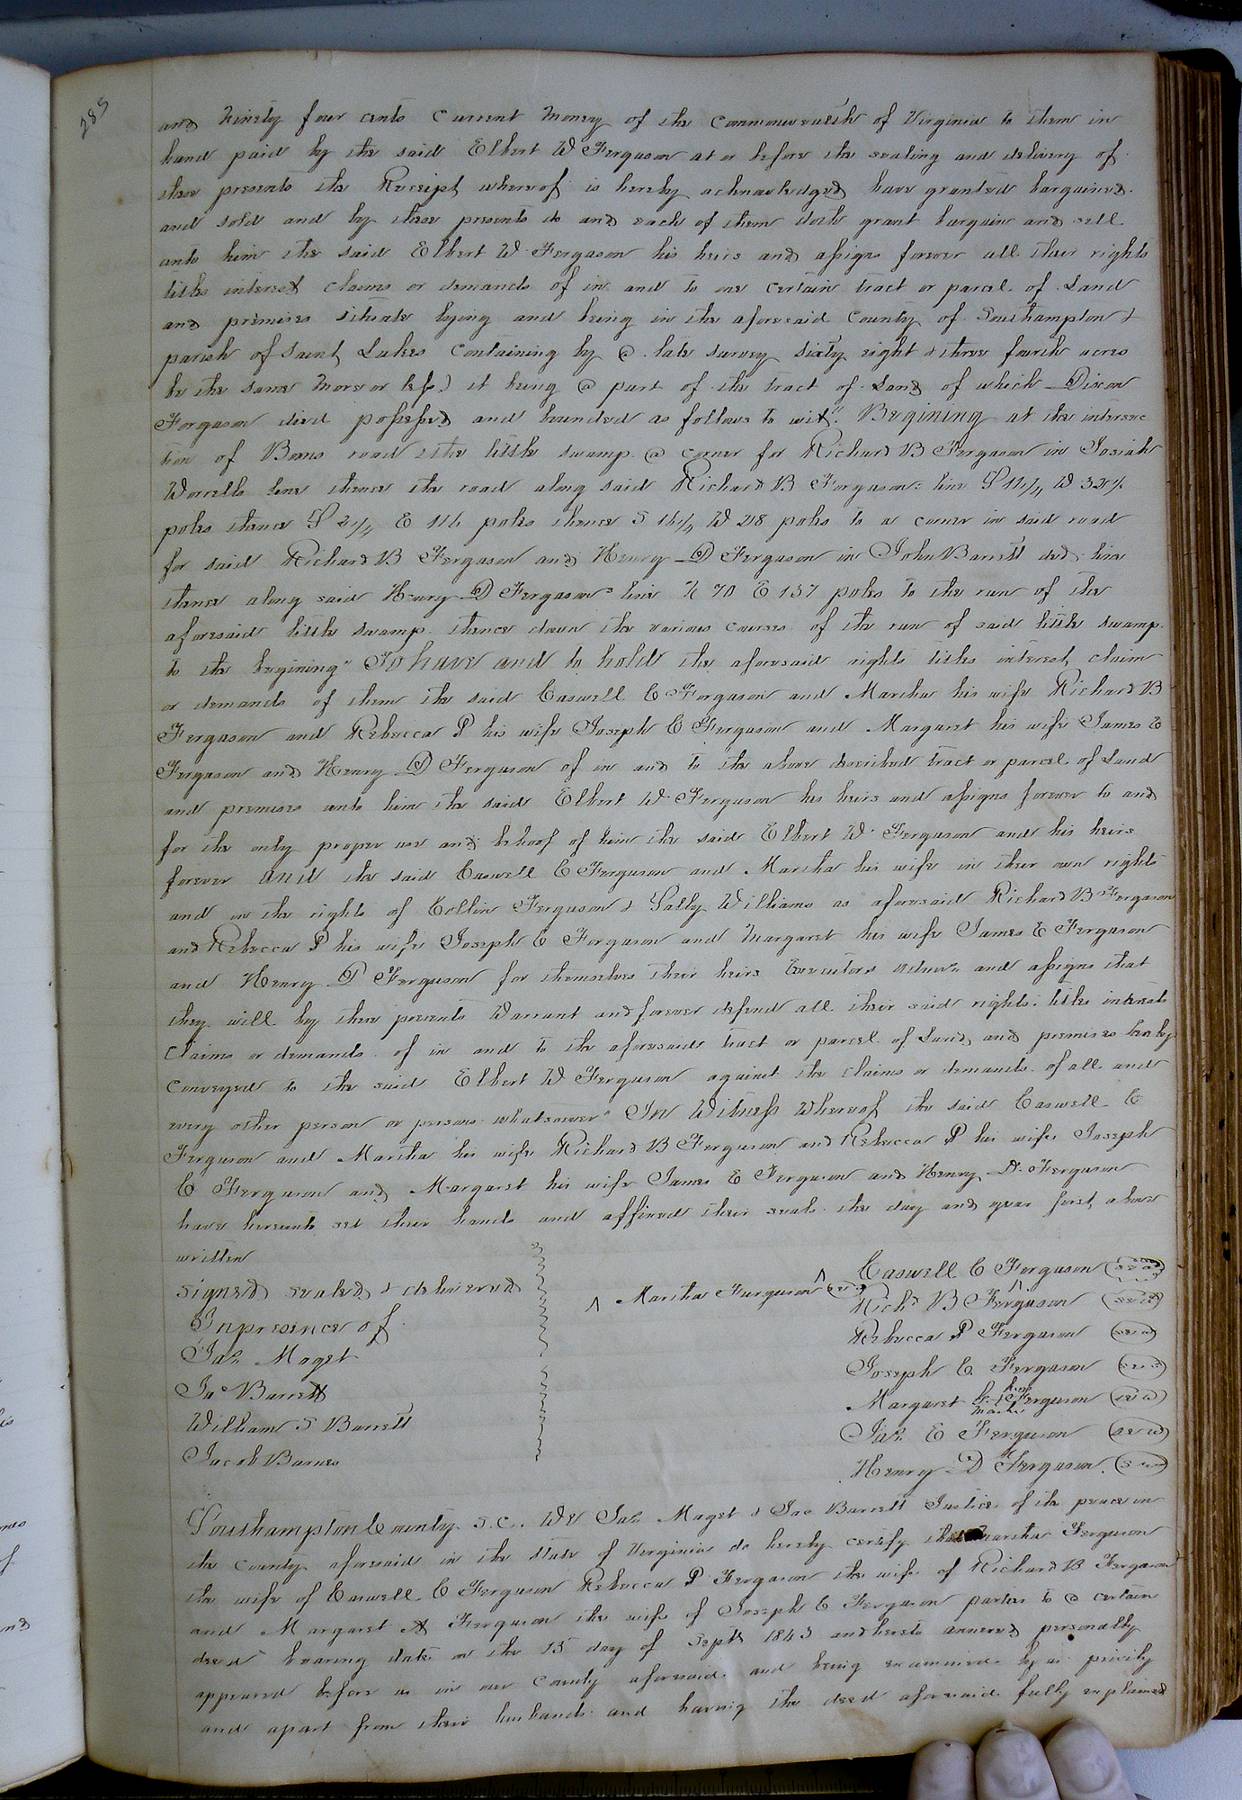 285
and Ninety four cents Current Money of the Commonwealth of Virginia to them in
hand paid by the said Elbert W Ferguson at or before the sealing and delivery of
these presents the Receipt whereof is hereby acknowledged have granted bargained
and sold and by these presents do and each of them doth grant bargain and sell
unto him the said Elbert W Ferguson his heirs and assigns forever all their rights
titles interest claims or demands of in and to one certain tract or parcel of Land
and premises situate lying and being in the aforesaid County of Southampton &
parish of Saint Lukes Containing by a late survey sixty eight & three fourth acres
be the same More or less) it being a part of the tract of Land of which Dixon
Ferguson died possessed and bounded as follows to wit" Begining at the intersec
tion of Barns road & the little swamp a corner for Richard B Ferguson in Josiah
Worrells line thence the road along said Richard B Fergusons line S W
poles thence S E 116 poles thence S W 28 poles to a corner in said road
for said Richard B Ferguson and Henry D Ferguson in John Barrett decd line
thence along said Henry D Fergusons line N 70 E 137 poles to the run of the
aforesaid little swamp thence down the various courses of the run of said little swamp
to the begining" To have and to hold the aforesaid rights titles interest claim
or demands of them the said Caswell C Ferguson and Martha his wife Richard B
Ferguson and Rebecca P his wife Joseph C Ferguson and Margaret his wife James E
Ferguson and Henry D Ferguson of in and to the above described tract or parcel of Land
and premises unto him the said Elbert W Ferguson his heirs and assigns forever to and
for the only proper use and behoof of him the said Elbert W Ferguson and his heirs
forever and the said Caswell C Ferguson and Martha his wife in their own rights
and in the rights of Collin Ferguson & Sally Williams as aforesaid Richard B Ferguson
and Rebecca P his wife Joseph C Ferguson and Margaret his wife James E Ferguson
and Henry D Ferguson for themselves their heirs Executors Admrs and assigns that
they will by these presents Warrant and forever defend all their said rights titles interests
Claims or demands of in and to the aforesaid tract or parcel of Land and premises hereby
conveyed to the said Elbert W Ferguson against the claims or demands of all and
every other person or persons whatsoever" In Witness Whereof the said Caswell C
Ferguson and Martha his wife Richard B Ferguson and Rebecca P his wife Joseph
C Ferguson and Margaret his wife James E Ferguson and Henry D Ferguson
have hereunto set their hands and affixed their seals the day and year first above
written
Caswell C Ferguson (seal)
signed sealed & delivered
^ Martha Furguson ^ (seal)
Richd B Ferguson (seal)
In presence of
Rebecca P Ferguson (seal)
Jas Maget
Joseph C Ferguson (seal)
Jac Barrett
Margaret her mark Ferguson (seal)
William S Barrett
Jas E Ferguson (seal)
Jacob Barnes
Henry D Ferguson (seal)
Southampton County S.C. We Jas Maget & Jac Barrett Justices of the peace in
the County aforesaid in the State of Virginia do hereby certify that Martha Ferguson
the wife of Caswell C Ferguson Rebecca P Ferguson the wife of Richard B Ferguson
and Margaret A Ferguson the wife of Joseph C Ferguson parties to a certain
deed bearing date on the 15 day of Sept 1843 and hereto annexed personally
appeared before us in our County aforesaid and being examined by us privily
and apart from their husbands and having the deed aforesaid fully explained